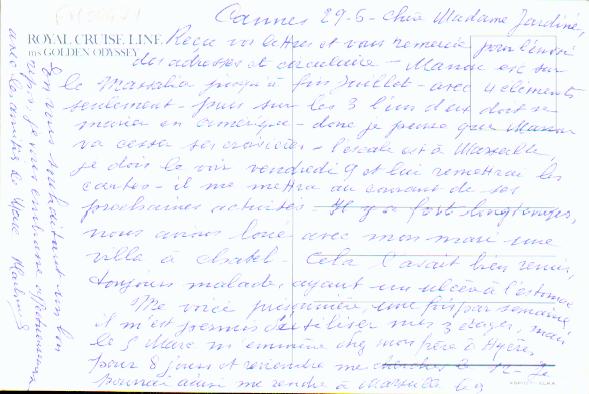 Cannes 29-5 - Chère Madame Jardiné,
ROYAL CRUISE LINE
ms GOLDEN ODYSSEY
Reçu vos lettres et vous remercie pour l'envoi
des adresses et circulaire - est sur
le Massalia jusqu'à fin Juillet - avec 4 éléments
seulement - puis sur les 3 l'un deux doit se
marier en Amérique - donc je pense que
va cesser ses croisières - l'escale est à Marseille,
je dois le voir vendredi 9 et lui remettrai les
cartes - il me mettra au courant de ses
prochaines activités - Il y a fort longtemps,
nous avions loué avec mon mari une
villa à Chatel - Cela l'avait bien remis,
toujours malade, ayant un ulcère à l'estomac
Me voici prisonnière, une fois par semaine,
il m'est permis d'utiliser mes 3 doigts, mais
le 3 Marc m'emmène chez mon père à Hyères,
pour 8 jours et reviendra me chercher
pourrai ainsi me rendre à Marseille le 9
En vous souhaitant un bon
repos, je vous embrasse affectueusement
avec les amitiés de